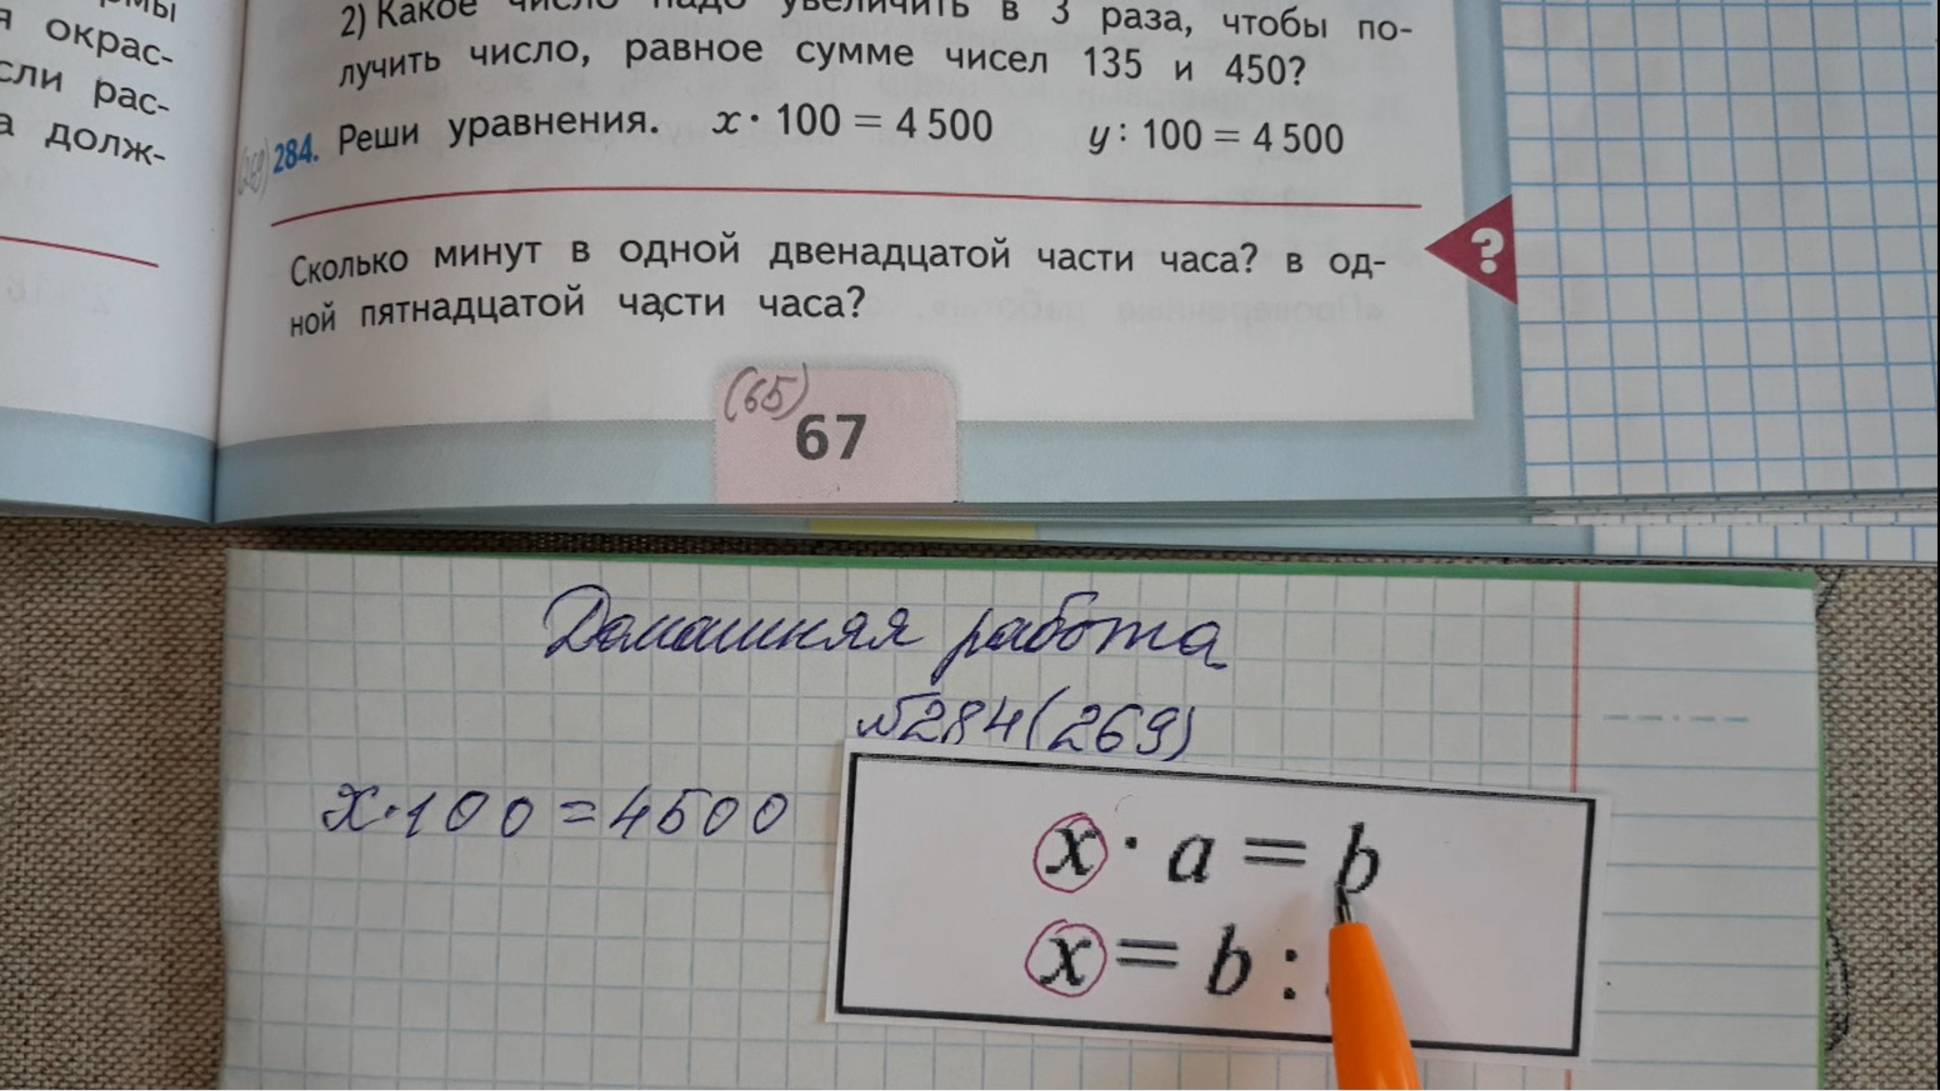 мы
я окрас-
сли рас-
а долж-
2) Какое число надо увеличить в 3 раза, чтобы по-
лучить число, равное сумме чисел 135 и 450?
(269) 284. Реши уравнения. x · 100 = 4 500 y : 100 = 4 500
Сколько минут в одной двенадцатой части часа? в од-
ной пятнадцатой части часа?
?
(65)
67
Домашняя работа
№284(269)
x·100=4500
x · a = b
x = b :